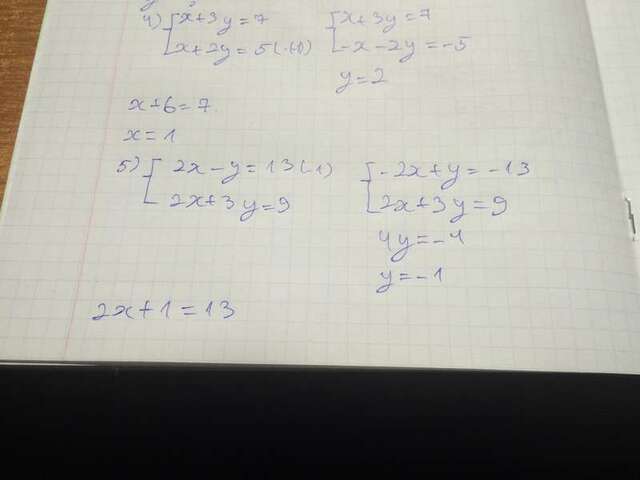 4) x+3y=7
x+2y=5(·(-1))
x+3y=7
-x-2y=-5
y=2
x+6=7
x=1
5) 2x-y=13(-1)
2x+3y=9
-2x+y=-13
2x+3y=9
4y=-4
y=-1
2x+1=13